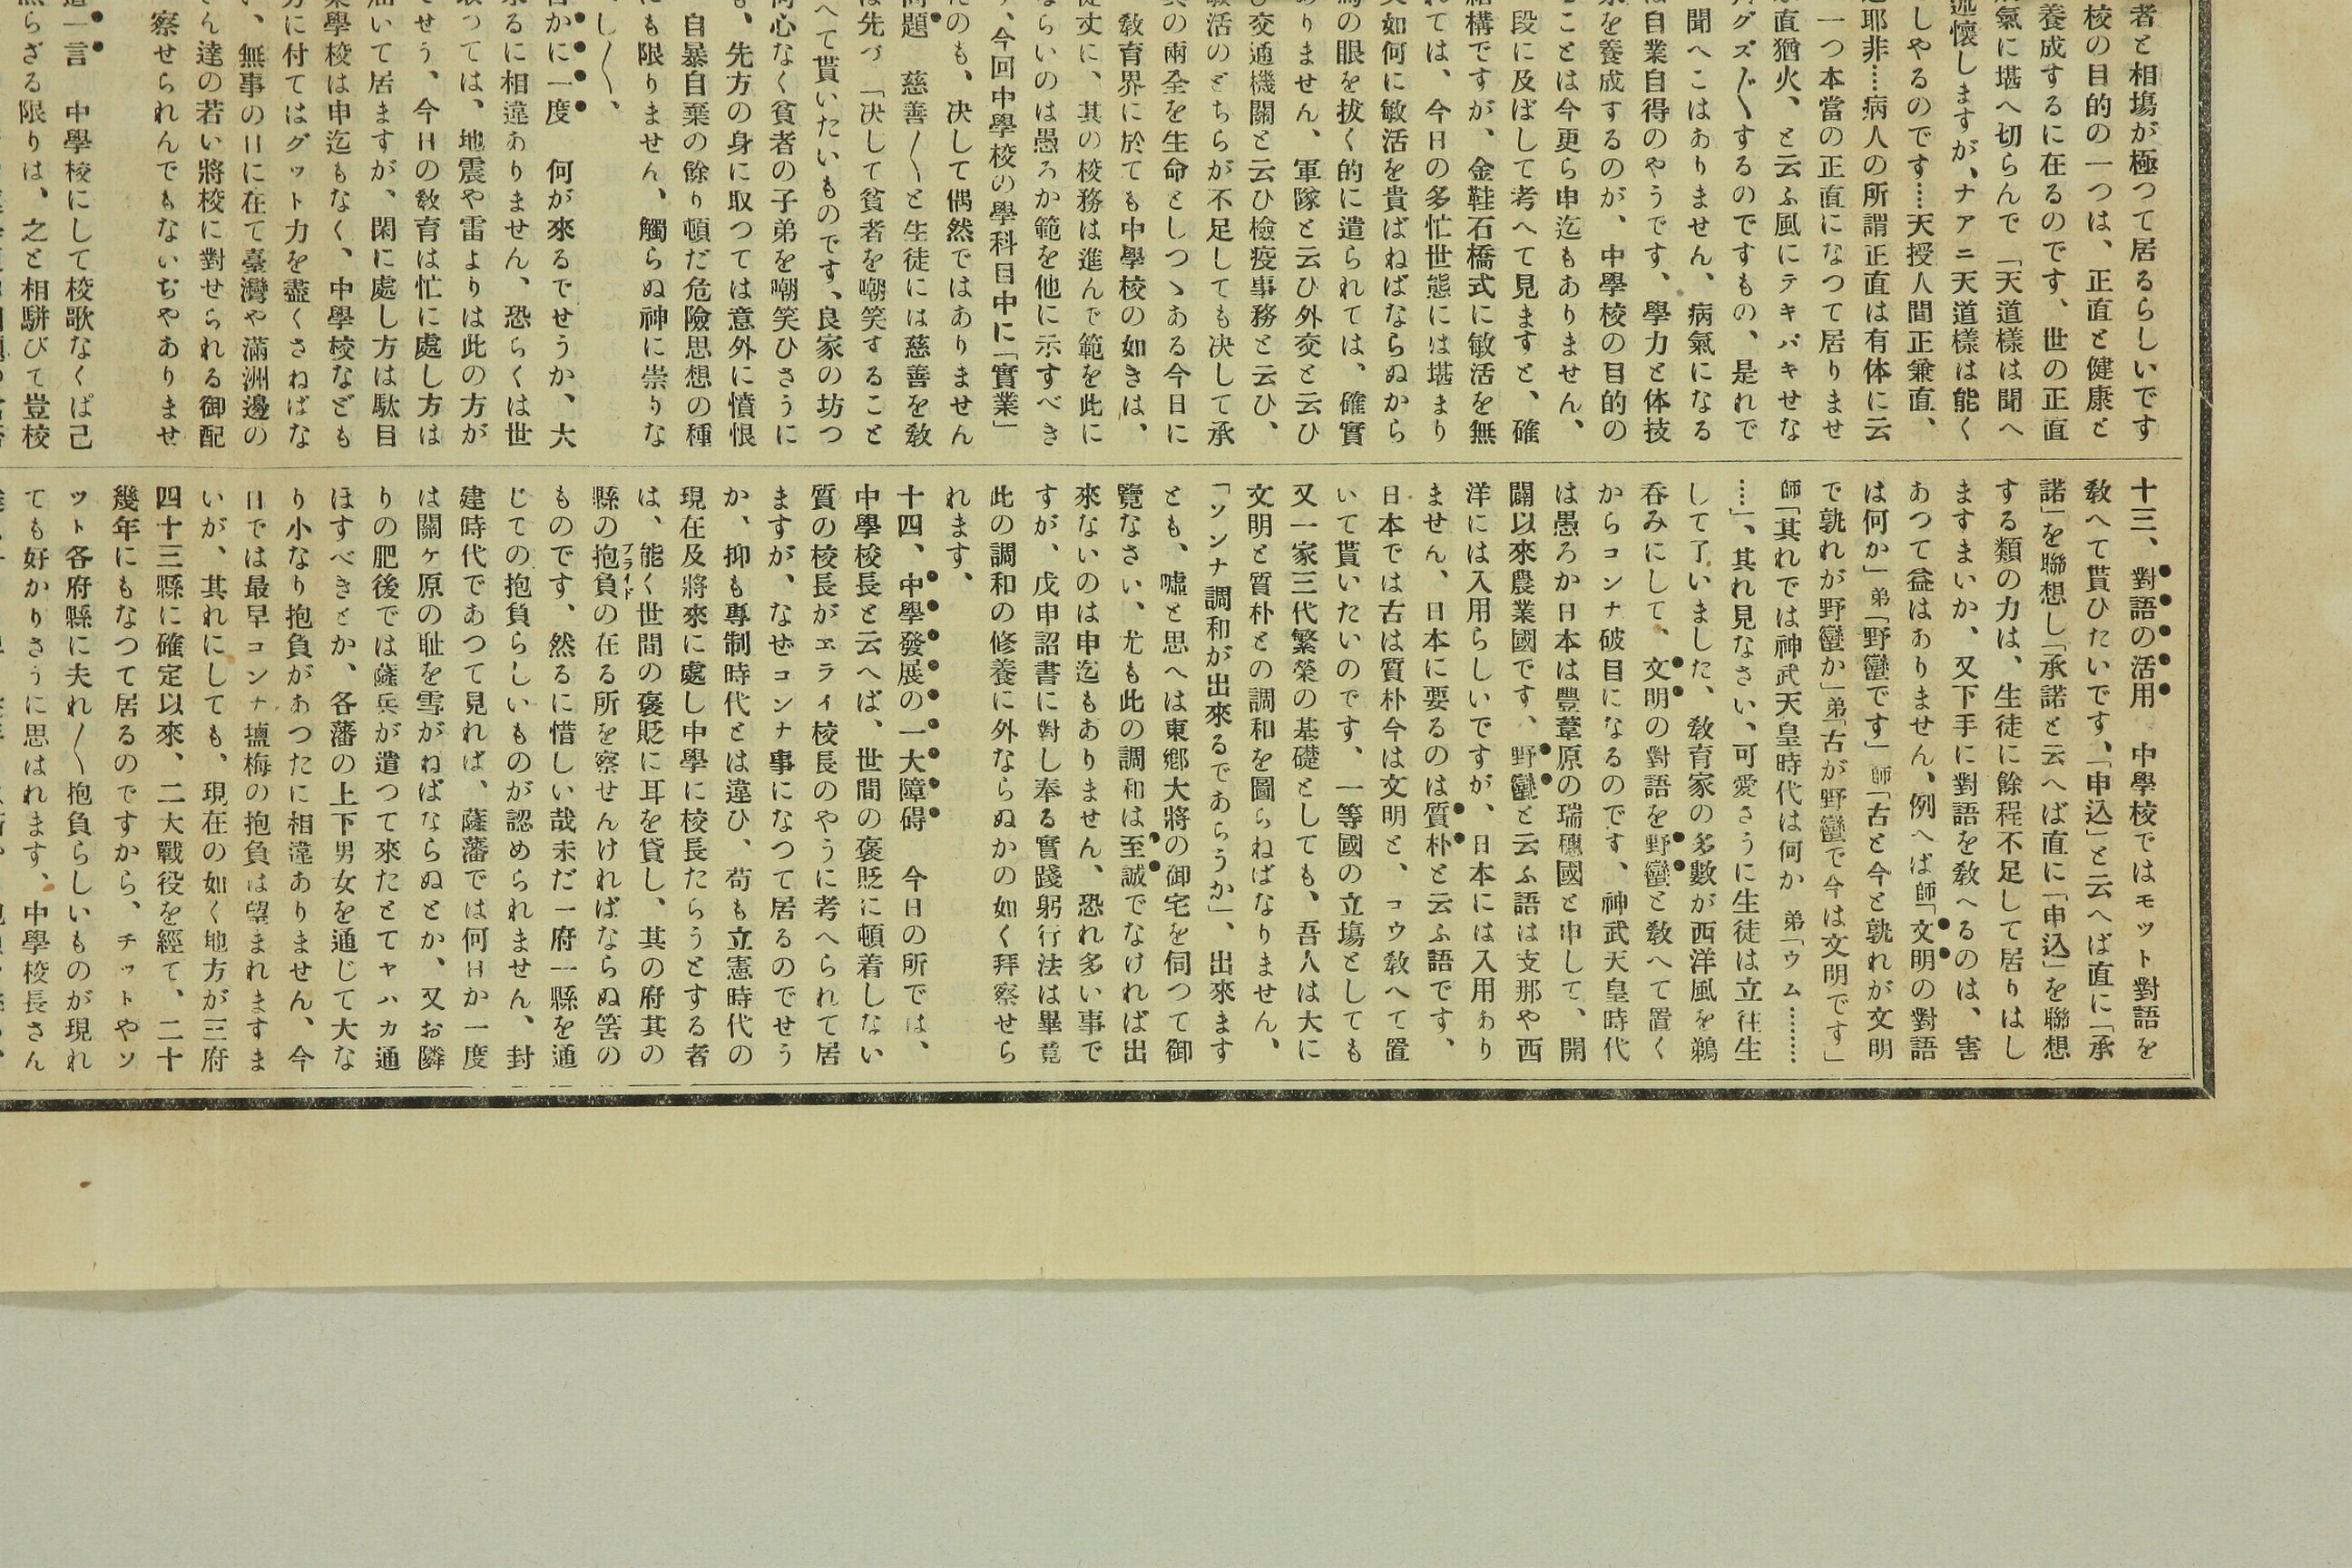 者と相塲が極つて居るらしいです
校の目的の一つは、正直と健康と
養成するに在るのです、世の正直
氣に堪へ切らんで「天道樣は聞へ
述懷しますが、ナアニ天道樣は能く
しやるのです……天授人間正兼直、
耶非……病人の所謂正直は有体に云
一つ本當の正直になつて居りませ
直猶火、と云ふ風にテキパキせな
グズ〲するのですもの、是れで
聞へこはありません、病氣になる
は自業自得のやうです、學力と体技
を養成するのが、中學校の目的の
ことは今更ら申迄もありません、
段に及ばして考へて見ますと、確
結構ですが、金鞋石橋式に敏活を無
れては、今日の多忙世態には堪まり
如何に敏活を貴ばねばならぬから
馬の眼を拔く的に遣られては、確實
ありません、軍隊と云ひ外交と云ひ
交通機關と云ひ檢疫事務と云ひ、
敏活のどちらが不足しても决して承
の兩全を生命としつゝある今日に
敎育界に於ても中學校の如きは、
丈に、其の校務は進んで範を此に
ならいのは愚ろか範を他に示すべき
、今回中學校の學科目中に「實業」
たのも、决して偶然ではありません
問題　慈善〳〵と生徒には慈善を敎
は先づ「决して貧者を嘲笑すること
へて貰いたいものです、良家の坊つ
何心なく貧者の子弟を嘲笑ひさうに
も、先方の身に取つては意外に憤恨
自暴自棄の餘り頓だ危險思想の種
にも限りません、觸らぬ神に崇りな
し〳〵、
かに一度　何が來るでせうか、大
るに相違ありません、恐らくは世
取つては、地震や雷よりは此の方が
せう、今日の敎育は忙に處し方は
届いて居ますが、閑に處し方は駄目
學校は申迄もなく、中學校なども
方に付てはグット力を盡くさねばな
い、無事の日に在て臺灣や滿洲邊の
さん達の若い將校に對せられる御配
察せられんでもないぢやありませ
一言　中學校にして校歌なくば己
らざる限りは、之と相駢びて豈校
十三、對語の活用　中學校ではモット對語を
敎へて貰ひたいです、「申込」と云へば直に「承
諾」を聯想し「承諾と云へば直に「申込」を聯想
する類の力は、生徒に餘程不足して居りはし
ますまいか、又下手に對語を敎へるのは、害
あつて益はありません、例へば師「文明の對語
は何か」弟「野蠻です」師「古と今と孰れが文明
で孰れが野蠻か」弟「古が野蠻で今は文明です」
師「其れでは神武天皇時代は何か　弟「ウム………
……」、其れ見なさい、可愛さうに生徒は立往生
して了いました、敎育家の多數が西洋風を鵜
呑みにして、文明の對語を野蠻と敎へて置く
からコンナ破目になるのです、神武天皇時代
は愚ろか日本は豐葦原の瑞穗國と申して、開
闢以來農業國です、野蠻と云ふ語は支那や西
洋には入用らしいですが、日本には入用あり
ません、日本に要るのは質朴と云ふ語です、
日本では古は質朴今は文明と、コウ敎へて置
いて貰いたいのです、一等國の立塲としても
又一家三代繁榮の基礎としても、吾人は大に
文明と質朴との調和を圖らねばなりません、
「ソンナ調和が出來るであらうか」、出來ます
とも、噓と思へは東鄕大將の御宅を伺つて御
覽なさい、尤も此の調和は至誠でなければ出
來ないのは申迄もありません、恐れ多い事で
すが、戊申詔書に對し奉る實踐躬行法は畢竟
此の調和の修養に外ならぬかの如く拜察せら
れます、
十四、中學發展の一大障碍　今日の所では、
中學校長と云へば、世間の褒貶に頓着しない
質の校長がヱライ校長のやうに考へられて居
ますが、なぜコンナ事になつて居るのでせう
か、抑も專制時代とは違ひ、苟も立憲時代の
現在及將來に處し中學に校長たらうとする者
は、能く世間の褒貶に耳を貸し、其の府其の
縣の抱負プライドの在る所を察せんければならぬ筈の
ものです、然るに惜しい哉未だ一府一縣を通
じての抱負らしいものが認められません、封
建時代であつて見れば、薩藩では何日か一度
は關ヶ原の耻を雪がねばならぬとか、又お隣
りの肥後では薩兵が遣つて來たとてヤハカ通
ほすべきとか、各藩の上下男女を通じて大な
り小なり抱負があつたに相違ありません、今
日では最早コンナ塩梅の抱負は望まれますま
いが、其れにしても、現在の如く地方が三府
四十三縣に確定以來、二大戰役を經て、二十
幾年にもなつて居るのですから、チットやソ
ット各府縣に夫れ〳〵抱負らしいものが現れ
ても好かりさうに思はれます、中學校長さん